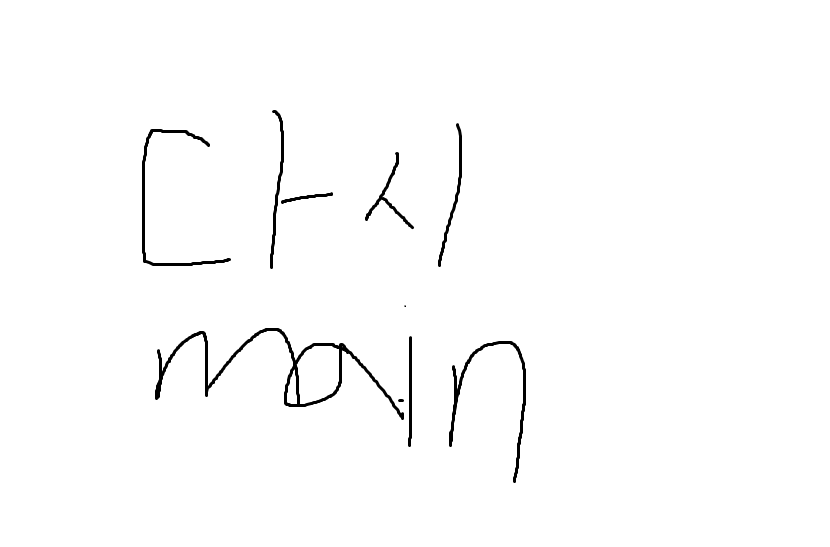 다시
main